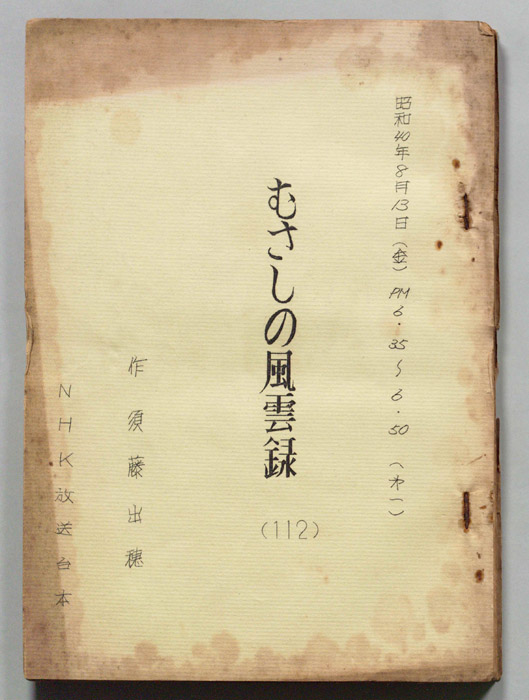 昭和40年8月13日(金) PM6.35〜6.50 (才一)
むさしの風雲録
(112)
作 須藤出穂
NHK放送台本